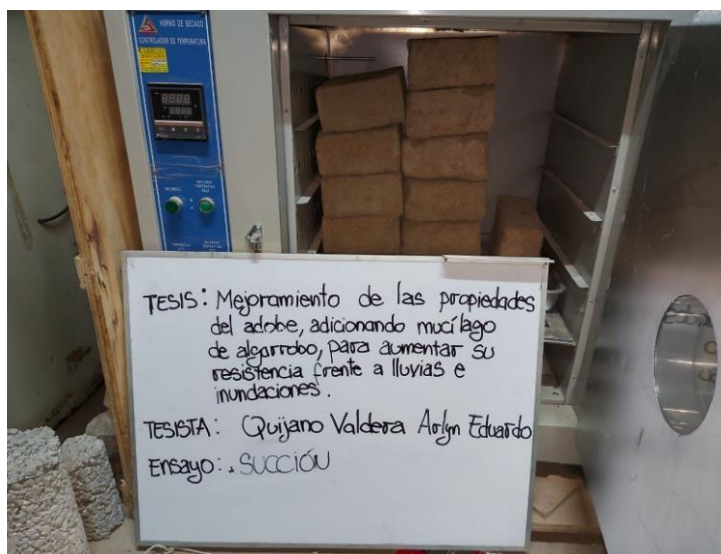 HORNO DE SECADO
CONTROLADOR DE TEMPERATURA
TESIS: Mejoramiento de las propiedades
del adobe, adicionando mucílago
de algarrobo, para aumentar su
resistencia frente a lluvias e
inundaciones.
TESISTA: Quijano Valdera Arlyn Eduardo
Ensayo: . SUCCIÓN